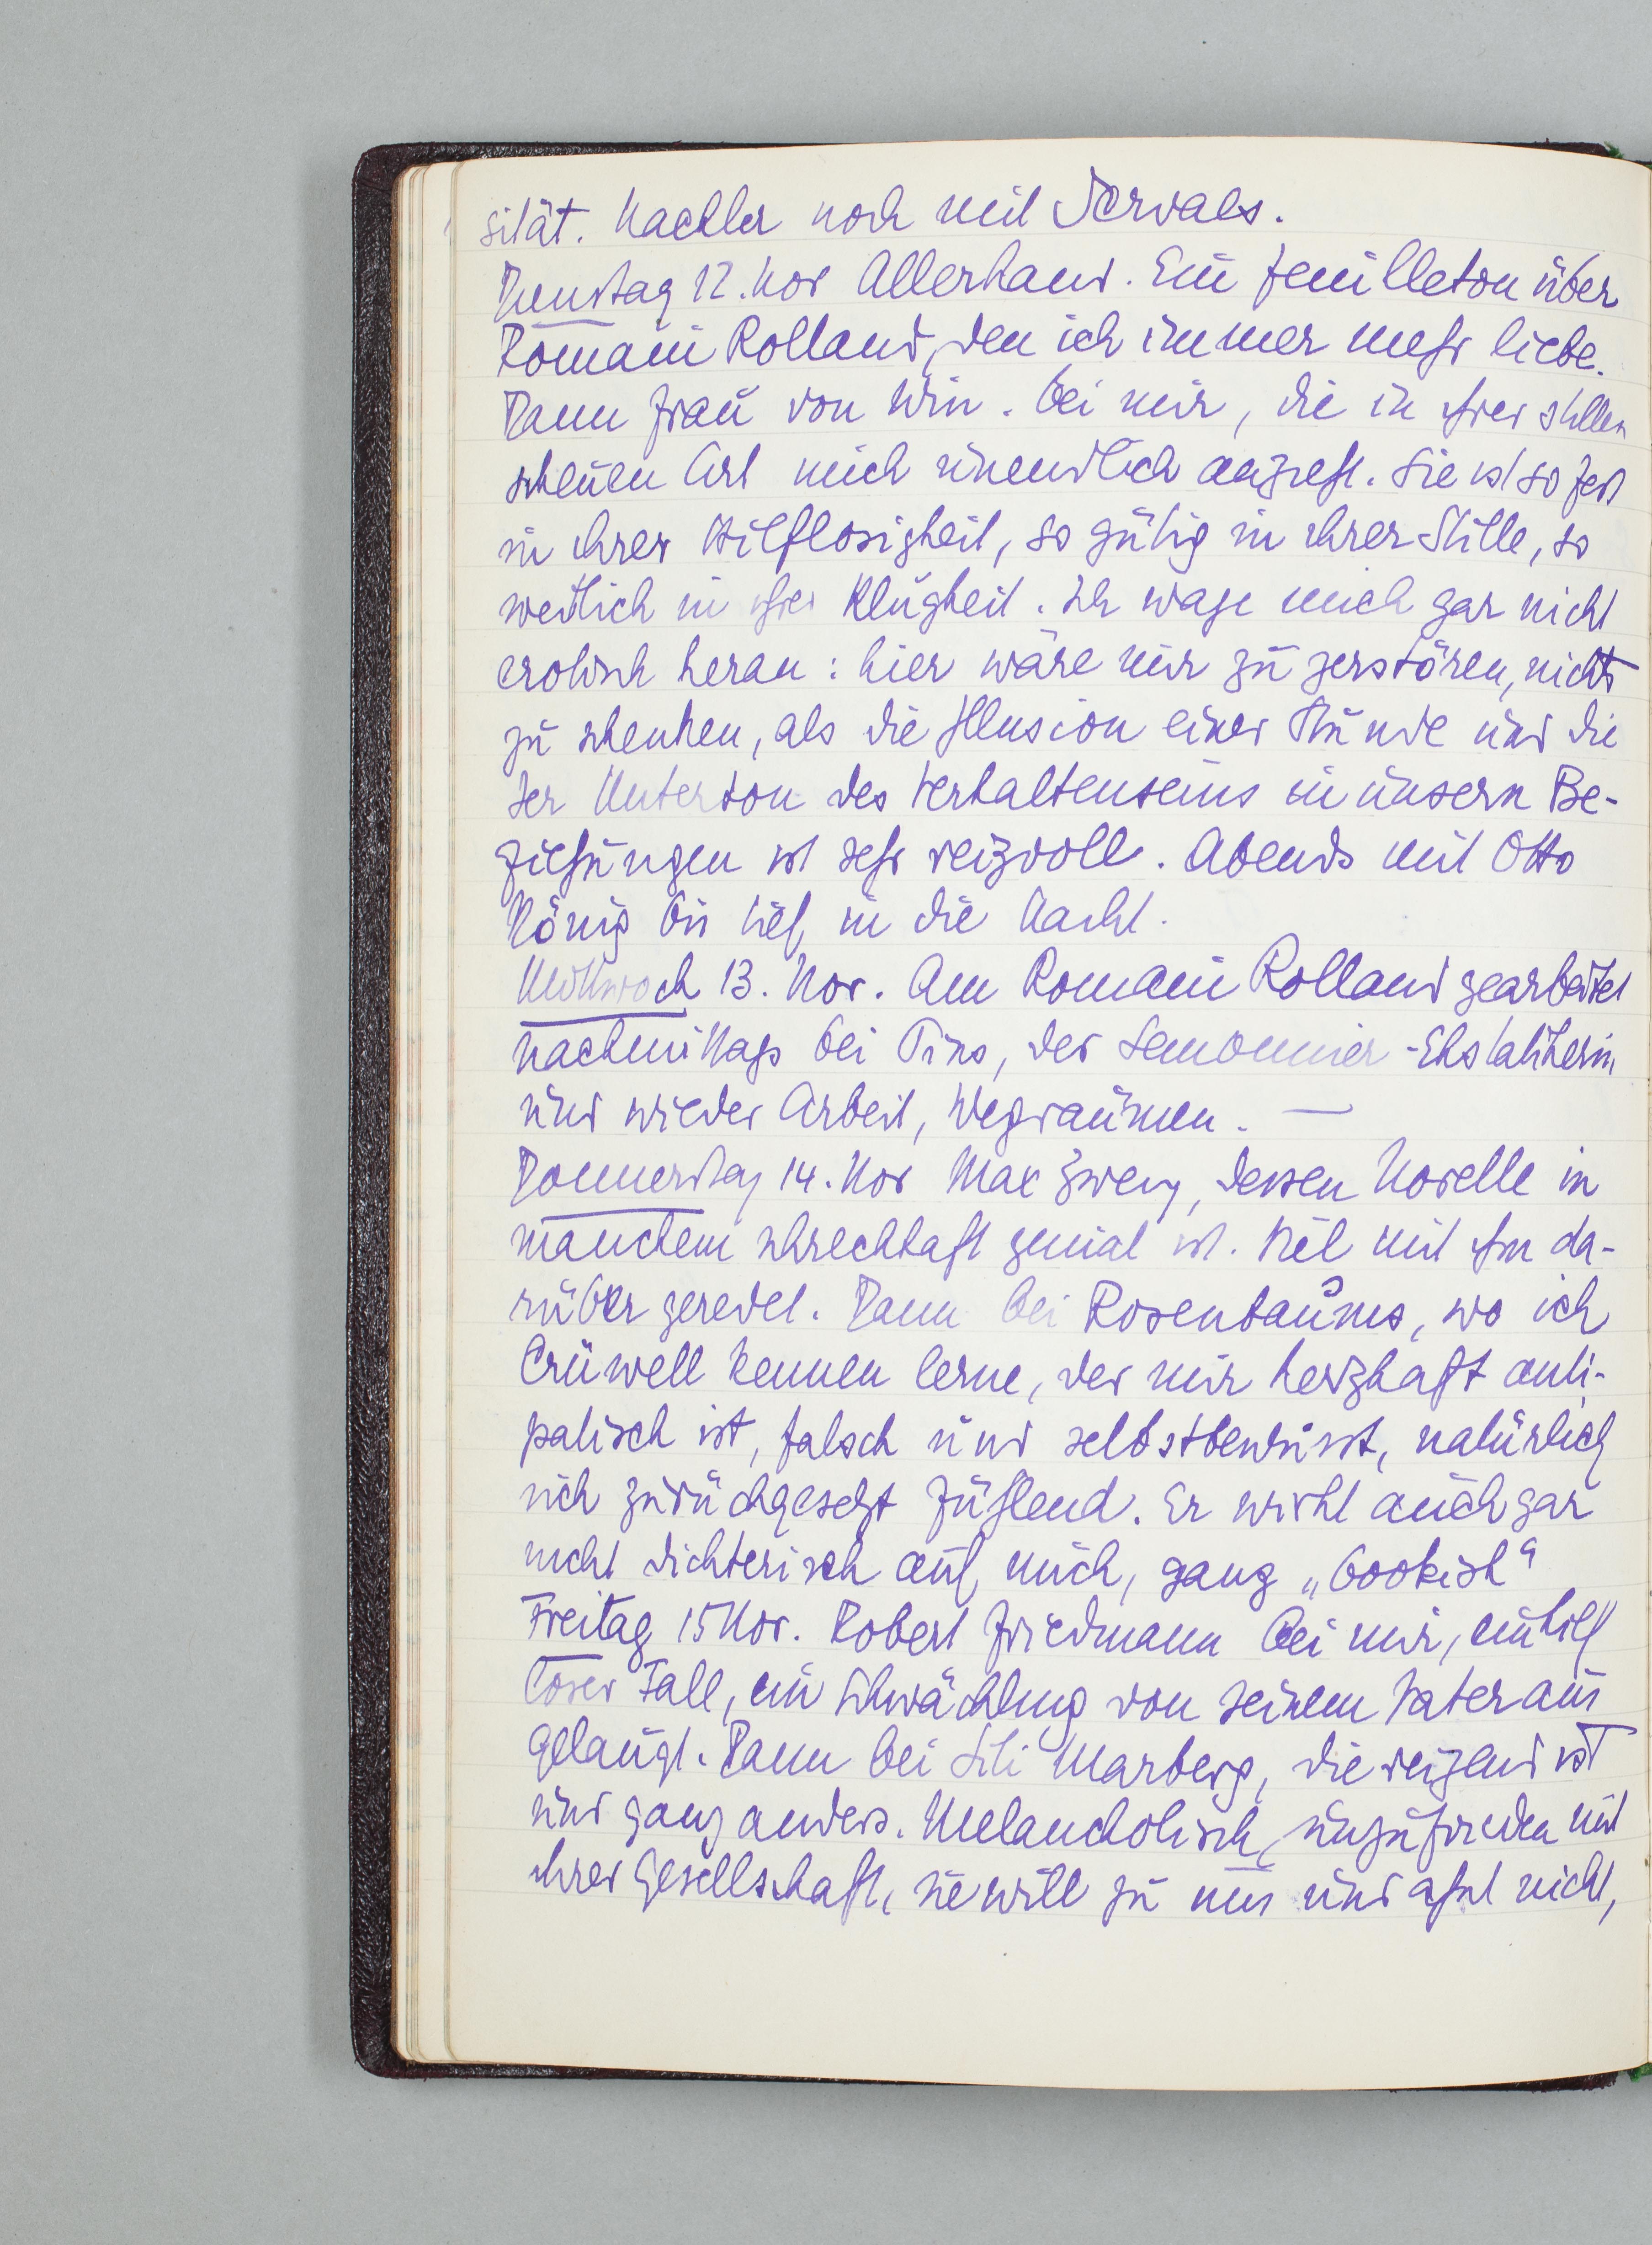 sität. Nachher noch mit Servaes.
Dienstag 12. Nov Allerhand. Ein Feuilleton über
Romain Rolland, den ich immer mehr liebe.
Dann Frau von Win. bei mir, die in ihrer stillen
scheuen Art mich unendlich anzieht. Sie ist so fest
in ihrer Hilflosigkeit, so gütig in ihrer Stille, so
weiblich in ihrer Klugheit. Ich wage mich gar nicht
erotisch heran: hier wäre nur zu zerstören, nichts
zu schenken, als die Illusion einer Stunde und die
der Unterton des Verhaltenseins in unsern Be-
ziehungen ist sehr reizvoll. Abends mit Otto
König bis tief in die Nacht.
Mittwoch 13. Nov. Am Romain Rolland gearbeitet
nachmittags bei der Lemonnier-
und wieder Arbeit, Wegräumen. —
Donnerstag 14. Nov Max Zweig, dessen Novelle in
manchem schreckhaft genial ist. Viel mit ihm da-
rüber geredet. Dann bei Rosenbaums, wo ich
Crüwell kennen lerne, der mir herzhaft anti-
patisch ist, falsch und selbstbewusst, natürlich
sich zurückgesetzt fühlend. Er wirkt auch gar
nicht dichterisch auf mich, ganz „bookish“
Freitag 15 Nov. Robert Friedmann bei mir, ein hilf
loser Fall, ein Schwächling von seinem Vater aus
gelaugt. Dann bei Lili Marberg, die reizend ist
und ganz anders. Melancholisch, unzufrieden mit
ihrer Gesellschaft, sie will zu uns und ahnt nicht,